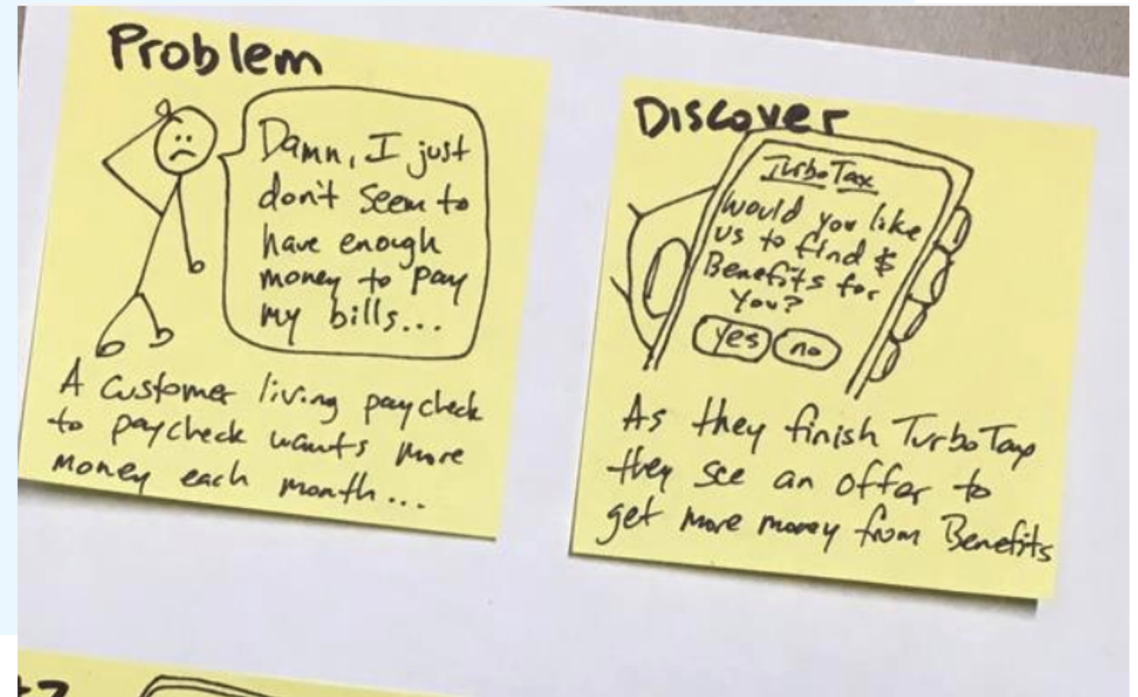 Problem
Damn, I just
don't seem to
have enough
money to pay
my bills...
A customer living paycheck
to paycheck wants more
money each month...
Discover
TurboTax
Would you like
us to find $
Benefits for
you?
yes no
As they finish TurboTax
they see an offer to
get more money from Benefits